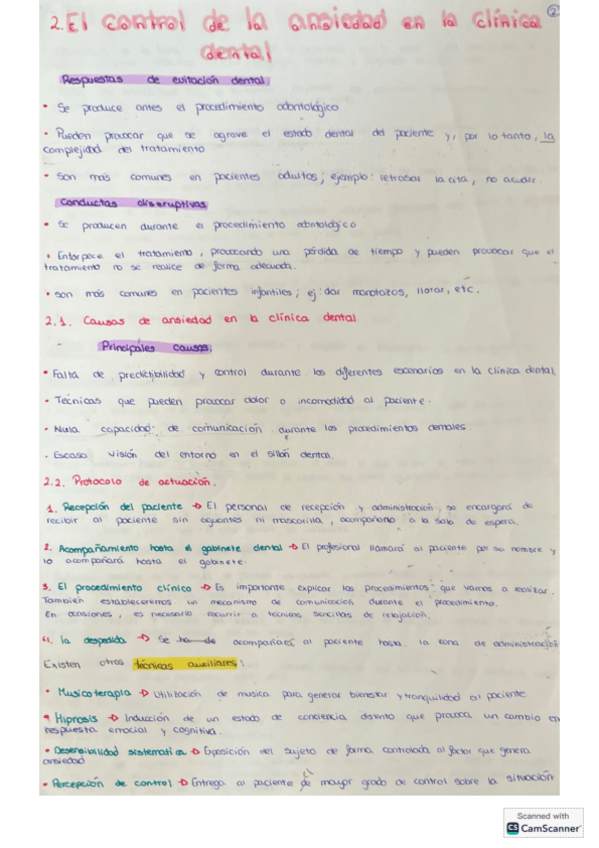 2
2. El control de la ansiedad en la clínica
dental
Respuestas de evitación dental:
• Se produce antes el procedimiento odontológico
• Pueden provocar que se agrave el estado dental del paciente y, por lo tanto, la
complejidad del tratamiento
• Son más comunes en pacientes adultos; ejemplo: retrasar la cita, no acudir.
Conductas disruptivas
• Se producen durante el procedimiento odontológico
• Entorpece el tratamiento, provocando una pérdida de tiempo y pueden provocar que el
tratamiento no se realice de forma adecuada.
• son más comunes en pacientes infantiles; ej: dar manotazos, llorar, etc.
2.1. Causas de ansiedad en la clínica dental
- Principales causas:
• Falta de predictibilidad y control durante los diferentes escenarios en la clínica dental
• Técnicas que pueden provocar dolor o incomodidad al paciente.
• Nula capacidad de comunicación durante los procedimientos dentales
• Escasa visión del entorno en el sillón dental.
2.2. Protocolo de actuación.
1. Recepción del paciente → El personal de recepción y administración, se encargará de
recibir al paciente sin guantes ni mascarilla, acompañarlo a la sala de espera.
2. Acompañamiento hasta el gabinete dental → El profesional llamará al paciente por su nombre y
lo acompañará hasta el gabinete.
3. El procedimiento clínico → Es importante explicar los procedimientos que vamos a realizar.
También estableceremos un mecanismo de comunicación durante el procedimiento.
En ocasiones, es necesario recurrir a técnicas sencillas de relajación.
4. la despedida → Se ha de acompañará al paciente hasta la zona de administración
Existen otras técnicas auxiliares:
• Musicoterapia → Utilización de musica para generar bienestar y tranquilidad al paciente
• Hipnosis → Inducción de un estado de conciencia distinto que provoca un cambio en
respuesta emocial y cognitiva.
• Desensibilidad sistematica → Exposición del sujeto de forma controlada al factor que genera
ansiedad
• Percepción de control → Entrego al paciente de mayor grado de control sobre la situación
Scanned with
CS CamScanner